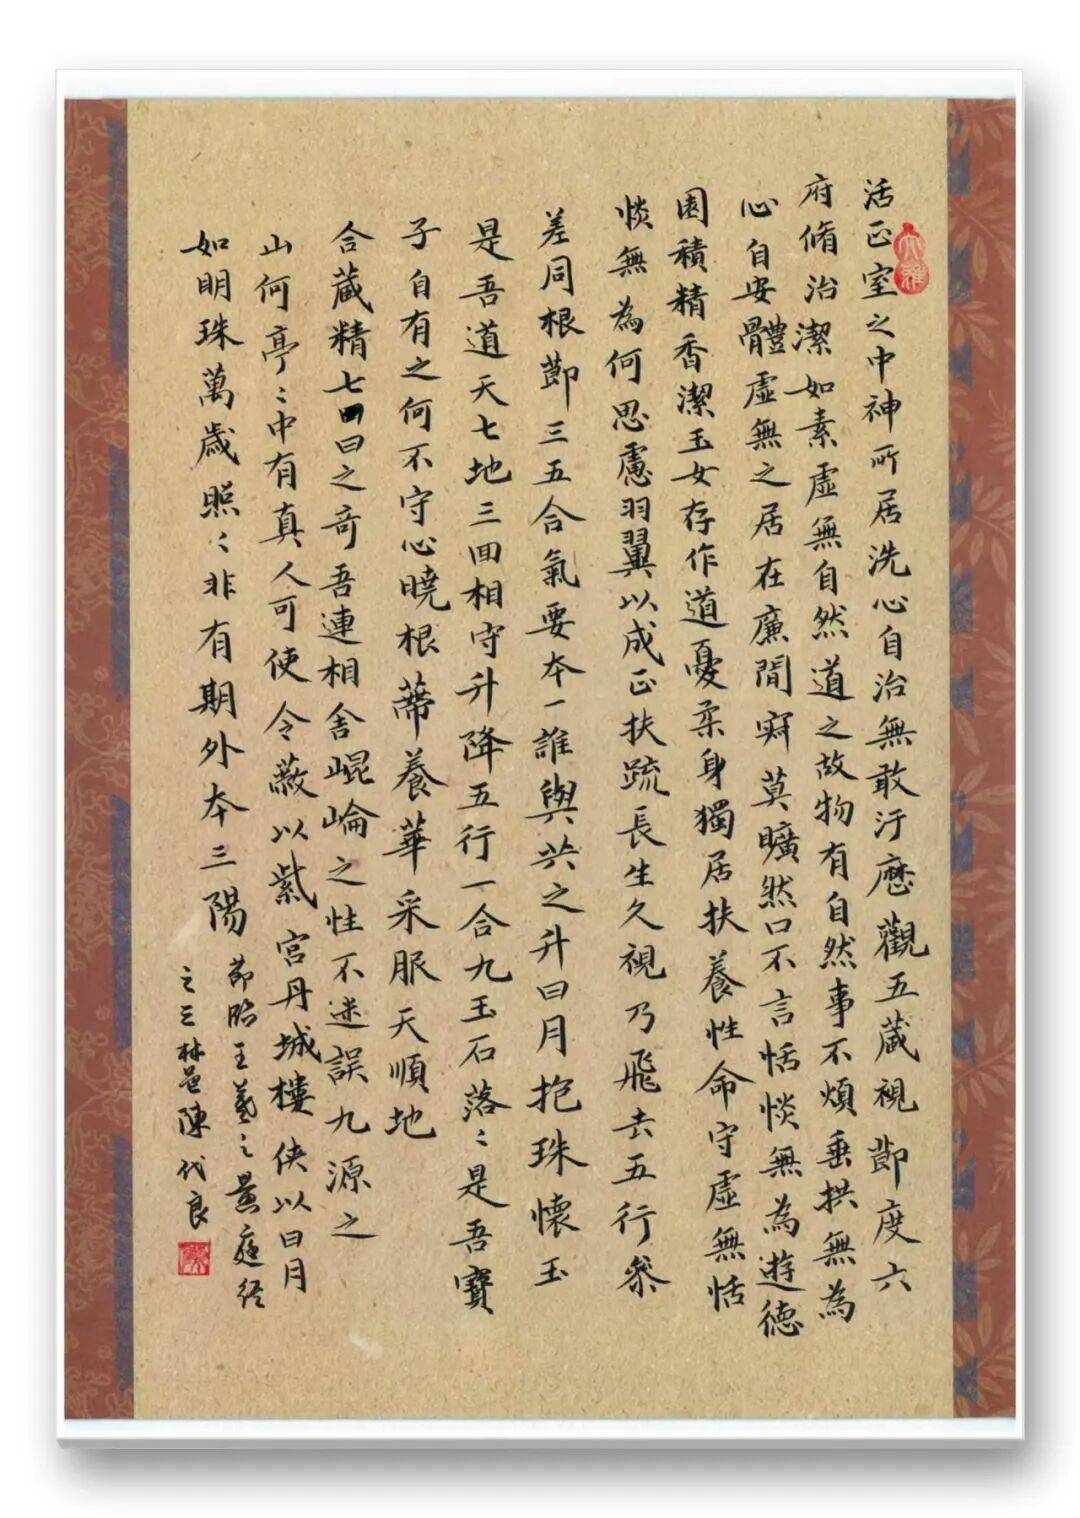 活正室之中神所居洗心自治無敢汙歷觀五藏視節度六
府脩治潔如素虛無自然道之故物有自然事不煩垂拱無為
心自安體虛無之居在廉間寂莫曠然口不言恬惔無為遊德
園積精香潔玉女存作道憂柔身獨居扶養性命守虛無恬
惔無為何思慮羽翼以成正扶疏長生久視乃飛去五行參
差同根節三五合氣要本一誰與共之升日月抱珠懷玉
是吾道天七地三回相守升降五行一合九玉石落〻是吾寶
子自有之何不守心曉根蒂養華采服天順地
合藏精七日之奇吾連相舍崐崘之性不迷誤九源之
山何亭〻中有真人可使令蔽以紫宮丹城樓俠以日月
如明珠萬歲照〻非有期外本三陽
節臨王羲之黃庭経
之三林邑陳代良
大雅